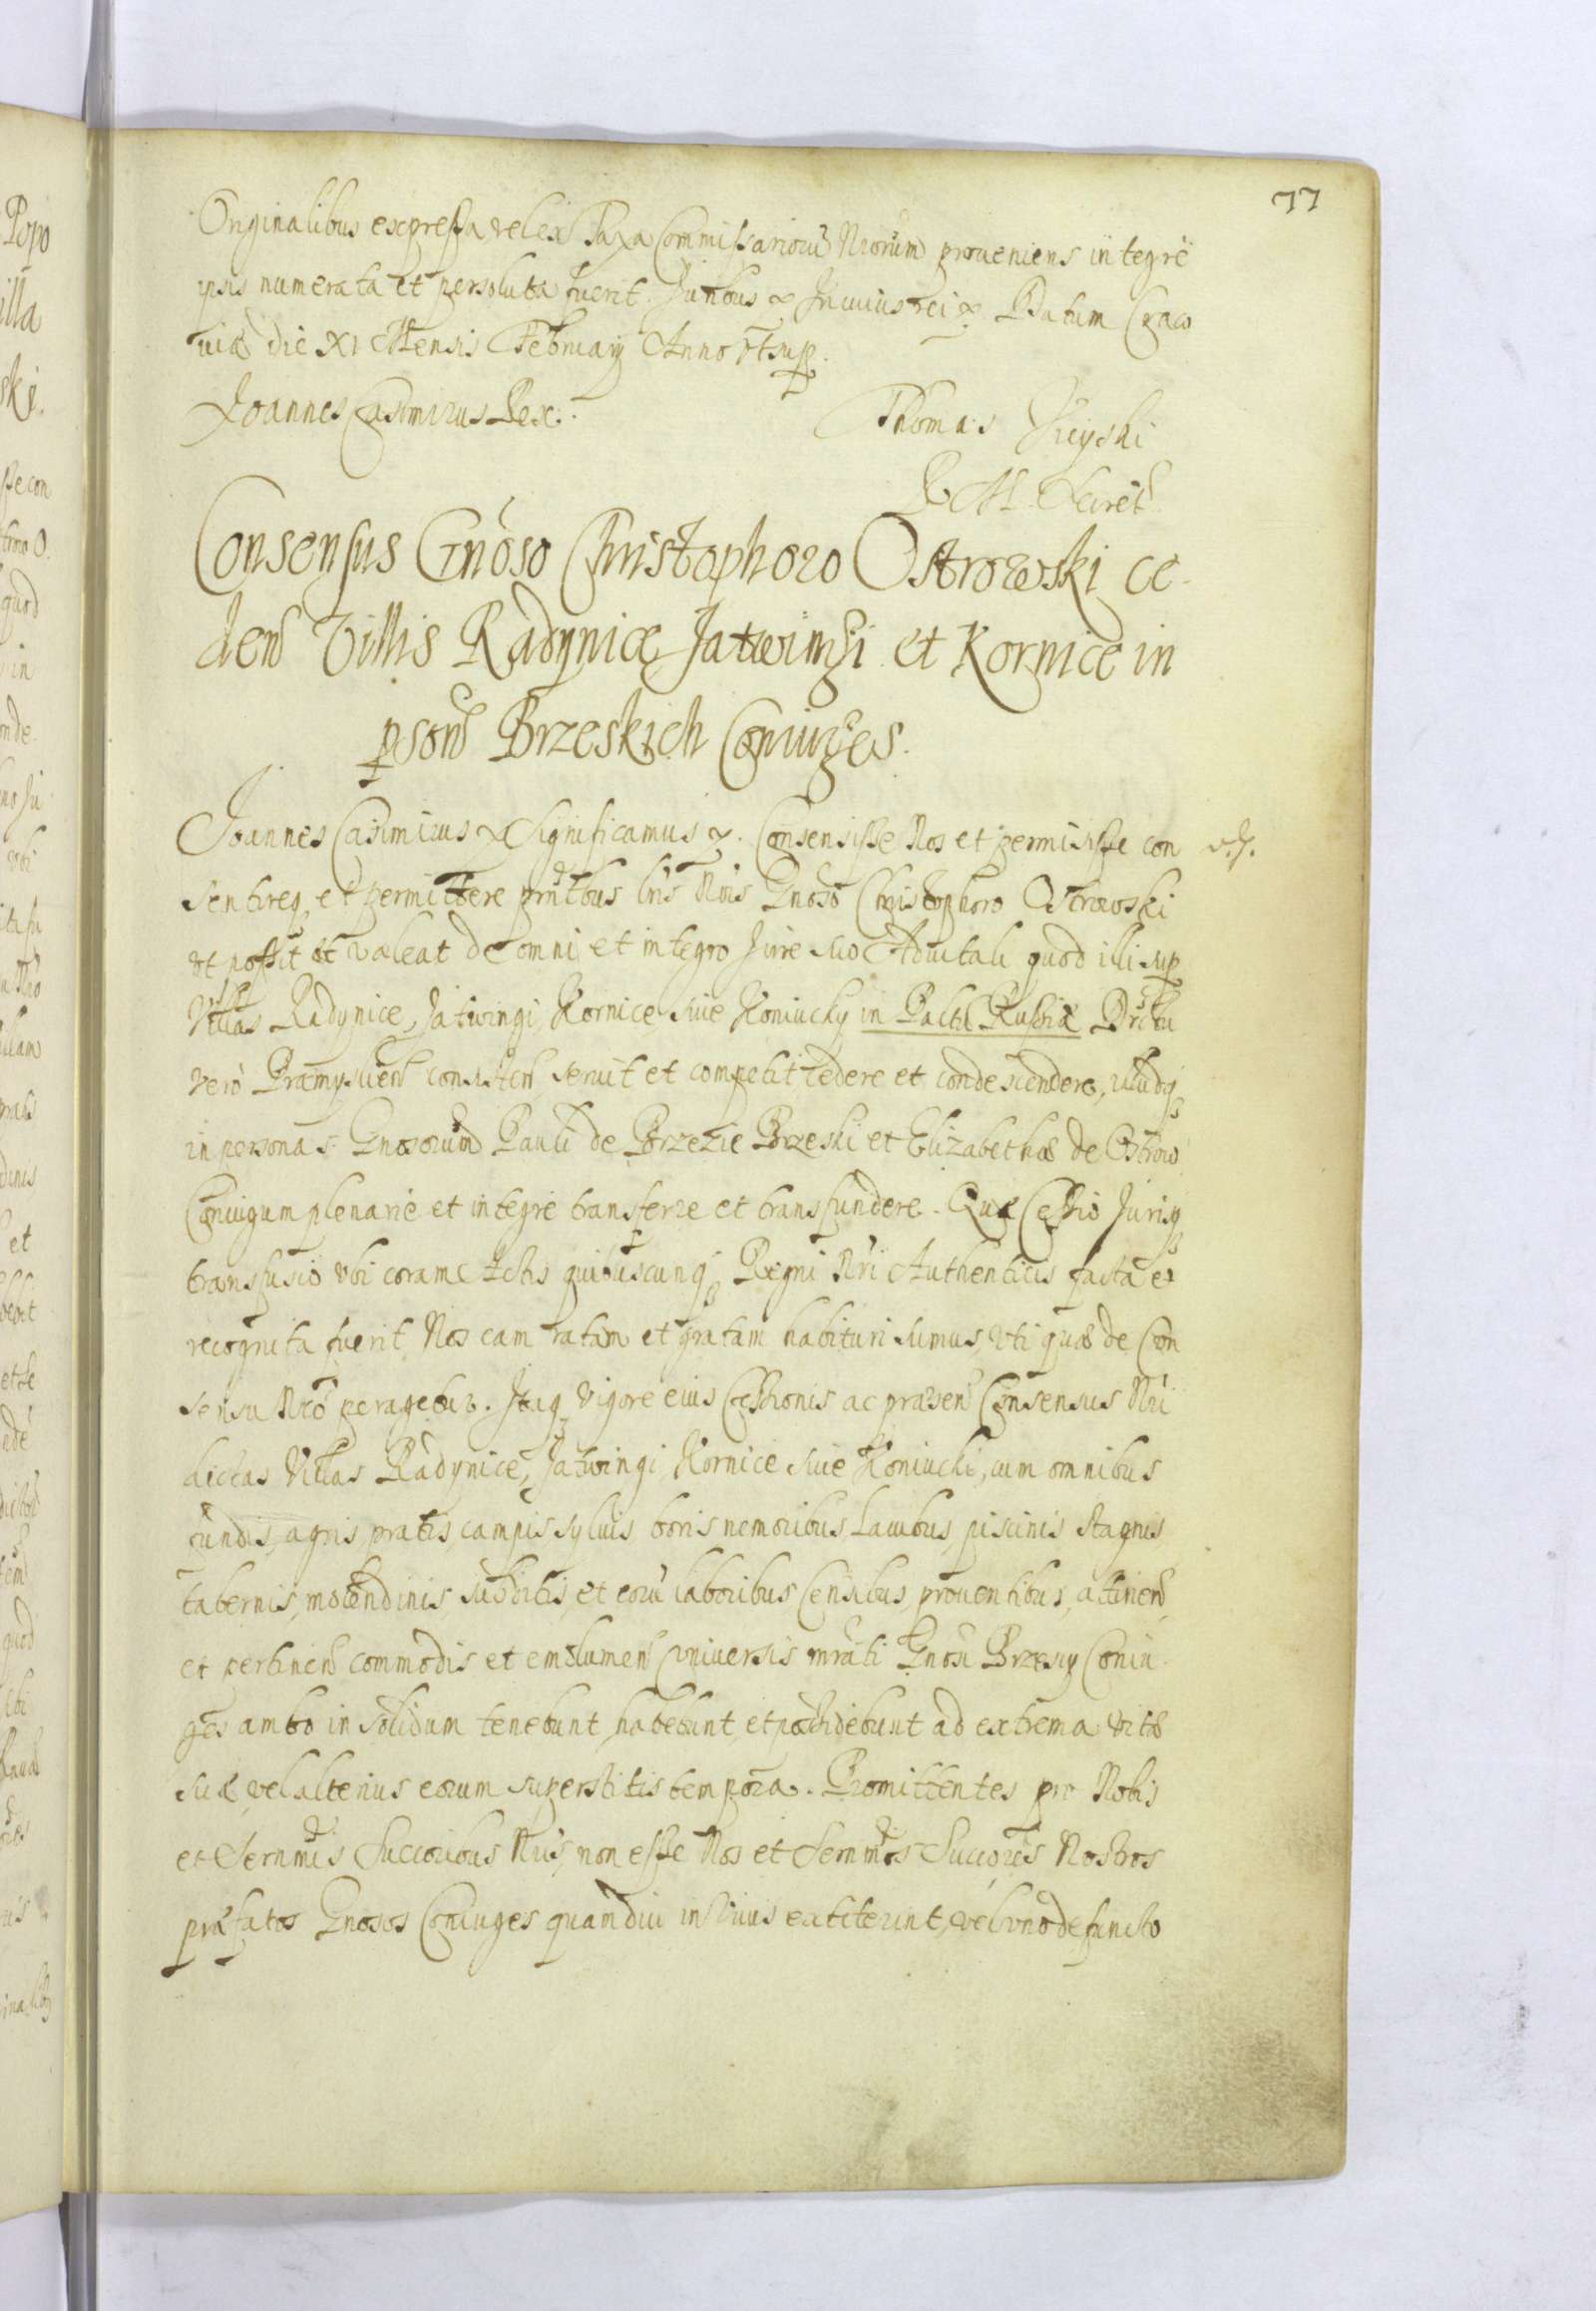 77
Originalibus expressa vel ex Taxa Commissarioru Nrorum proueniens integrè
ipsis numerata et persoluta fuerit. Juribus & In cuius rei &. Datum Craco
uiæ die XI Mensis February Anno vt sup.
Joannes Casimirus Rex.
Thomas Uieyski
R. M. Secret
Consensus Gnoso Christophoro Ostrowski ce-
den Villis Radynice, Jatwingi et Kornice in
pson Brzeskich Coniuges.
Joannes Casimirus & Significamus &. Consensisse Nos et permisisse con
sentireq, et permittere pntbus lris Nris Gnoso Christophoro Ostrowski
vt possit et valeat de omni et integro Jure suo Aduitali quod illi sup
Villas Radynice, Jatwingi, Kornice siue Koniucky in Paltu Russiæ Drctu
verò Præmyslien consisten seruit et competit, cedere et condescendere, illudq
in personas Gnosorum Pauli de Brzezie Brzeski et Elizabethæ de Ostrow
Coniugum plenariè et integrè transferre et transfundere. Quæ Cessio Jurisq
transfusio vbi coram Actis quibuscunq Regni Nri Authenticis facta et
recognita fuerit Nos eam ratam et gratam habituri sumus, vti quæ de Con
sensu Nro peragetur. Itaq vigore eius Cessionis ac præsen Consensus Nri
dictas Villas Radynice, Jatwingi, Kornice siue Koniucki, cum omnibus
fundis, agris, pratis, campis, syluis, boris, nemoribus, Lacubus, piscinis, stagnis
tabernis, molendinis, subditis, et eoru laboribus, Censibus, prouentibus, attinen
et pertinen commodis et emolumen vniuersis mrati Gnosi Brzescy Coniu
ges ambo in solidum tenebunt, habebunt, et possidebunt ad extrema vitæ
suæ, vel alterius eorum superstitis tempora. Promittentes pro Nobis
et Sernmis Succoribus Nris, non esse Nos et Sernmos Succores Nostros
præfatos Gnosos Coniuges quamdiu in viuis extiterint, vel vno defuncto